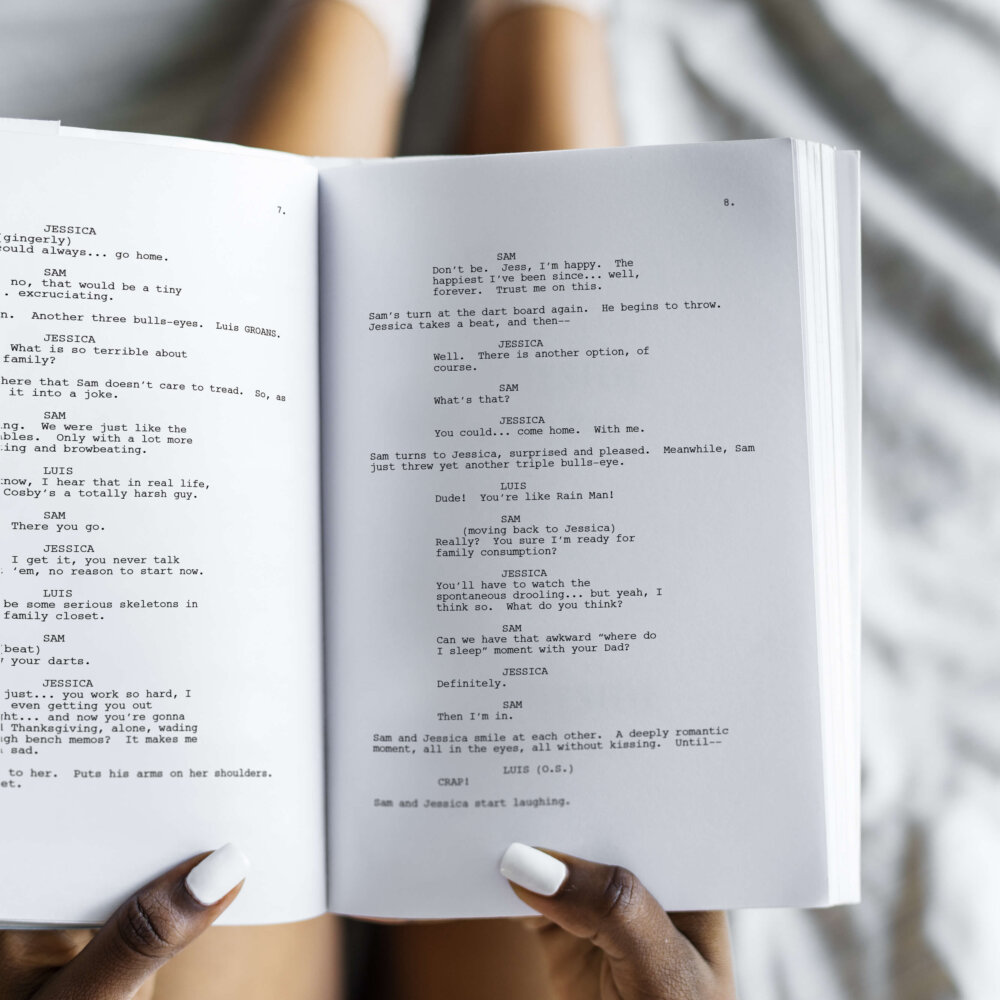 7.
JESSICA
(gingerly)
could always... go home.
SAM
no, that would be a tiny
. excruciating.
n. Another three bulls-eyes. Luis GROANS.
JESSICA
What is so terrible about
family?
here that Sam doesn't care to tread. So, as
it into a joke.
SAM
ng. We were just like the
bles. Only with a lot more
ing and browbeating.
LUIS
now, I hear that in real life,
Cosby's a totally harsh guy.
SAM
There you go.
JESSICA
I get it, you never talk
'em, no reason to start now.
LUIS
be some serious skeletons in
family closet.
SAM
(beat)
your darts.
JESSICA
just... you work so hard, I
even getting you out
ht... and now you're gonna
Thanksgiving, alone, wading
gh bench memos? It makes me
sad.
to her. Puts his arms on her shoulders.
et.
8.
SAM
Don't be. Jess, I'm happy. The
happiest I've been since... well,
forever. Trust me on this.
Sam's turn at the dart board again. He begins to throw.
Jessica takes a beat, and then--
JESSICA
Well. There is another option, of
course.
SAM
What's that?
JESSICA
You could... come home. With me.
Sam turns to Jessica, surprised and pleased. Meanwhile, Sam
just threw yet another triple bulls-eye.
LUIS
Dude! You're like Rain Man!
SAM
(moving back to Jessica)
Really? You sure I'm ready for
family consumption?
JESSICA
You'll have to watch the
spontaneous drooling... but yeah, I
think so. What do you think?
SAM
Can we have that awkward "where do
I sleep" moment with your Dad?
JESSICA
Definitely.
SAM
Then I'm in.
Sam and Jessica smile at each other. A deeply romantic
moment, all in the eyes, all without kissing. Until--
LUIS (O.S.)
CRAP!
Sam and Jessica start laughing.